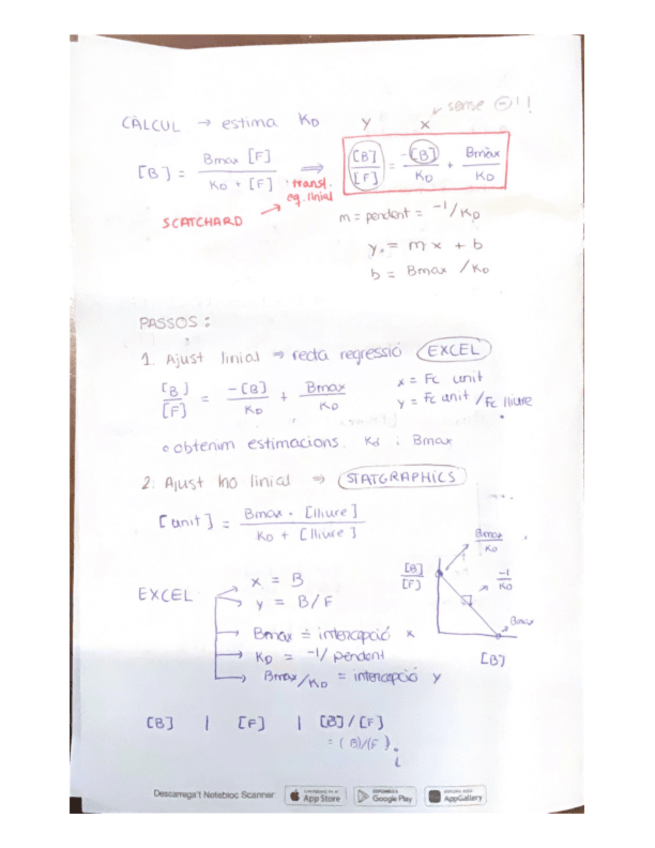 sense ⊖!!
CÀLCUL → estima KD
y x
[B] = Bmax [F] / KD + [F] ⟹ [B]/[F] = -[B]/KD + Bmax/KD
: transf. eq. linial
SCATCHARD
m = pendent = -1/KD
y = mx + b
b = Bmax / KD
PASSOS :
1. Ajust linial ⇒ recta regressió EXCEL
[B]/[F] = -[B]/KD + Bmax/KD
x = Fc unit
y = Fc unit / Fc lliure
• obtenim estimacions Kd i Bmax
2. Ajust no linial ⇒ STATGRAPHICS
[unit] = Bmax · [lliure] / KD + [lliure]
Bmax/KD
[B]/[F]
-1/KD
Bmax
[B]
EXCEL
x = B
y = B/F
Bmax = intercepció x
KD = -1/pendent
Bmax/KD = intercepció y
[B] | [F] | [B]/[F]
= (B)/(F)
Descarrega't Notebloc Scanner
App Store
Google Play
AppGallery